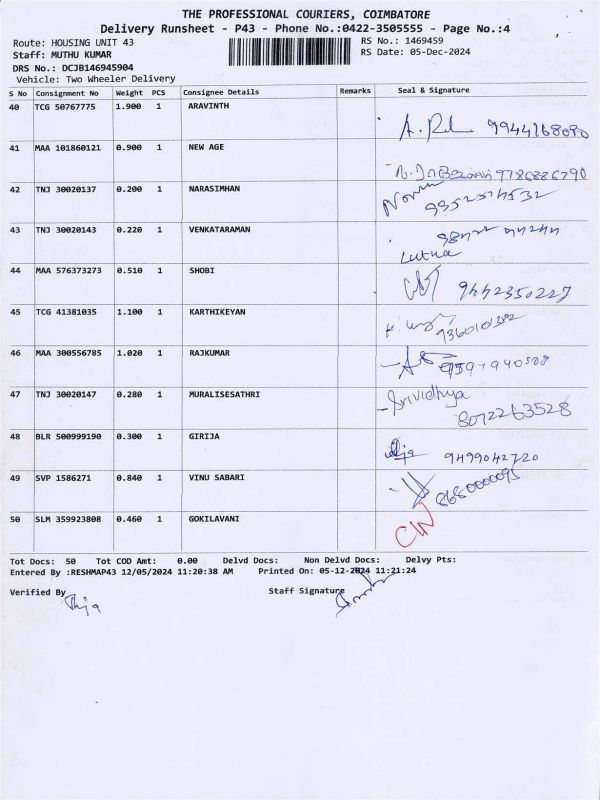 THE PROFESSIONAL COURIERS, COIMBATORE
Delivery Runsheet - P43 - Phone No.:0422-3505555 - Page No.:4
Route: HOUSING UNIT 43
RS No.: 1469459
Staff: MUTHU KUMAR
RS Date: 05-Dec-2024
DRS No.: DCJB146945904
Vehicle: Two Wheeler Delivery
S No Consignment No Weight PCS Consignee Details Remarks Seal & Signature
40 TCG 50767775 1.900 1 ARAVINTH
9944268090
41 MAA 101860121 0.900 1 NEW AGE
9786886790
42 TNJ 30020137 0.200 1 NARASIMHAN
43 TNJ 30020143 0.220 1 VENKATARAMAN
44 MAA 576373273 0.510 1 SHOBI
9442350227
45 TCG 41381035 1.100 1 KARTHIKEYAN
46 MAA 300556785 1.020 1 RAJKUMAR
47 TNJ 30020147 0.280 1 MURALISESATHRI
Srividhya
8072263528
48 BLR 500999190 0.300 1 GIRIJA
9499042720
49 SVP 1586271 0.840 1 VINU SABARI
8680000095
50 SLM 359923808 0.460 1 GOKILAVANI
Tot Docs: 50 Tot COD Amt: 0.00 Delvd Docs: Non Delvd Docs: Delvy Pts:
Entered By :RESHMAP43 12/05/2024 11:20:38 AM Printed On: 05-12-2024 11:21:24
Verified By Staff Signature